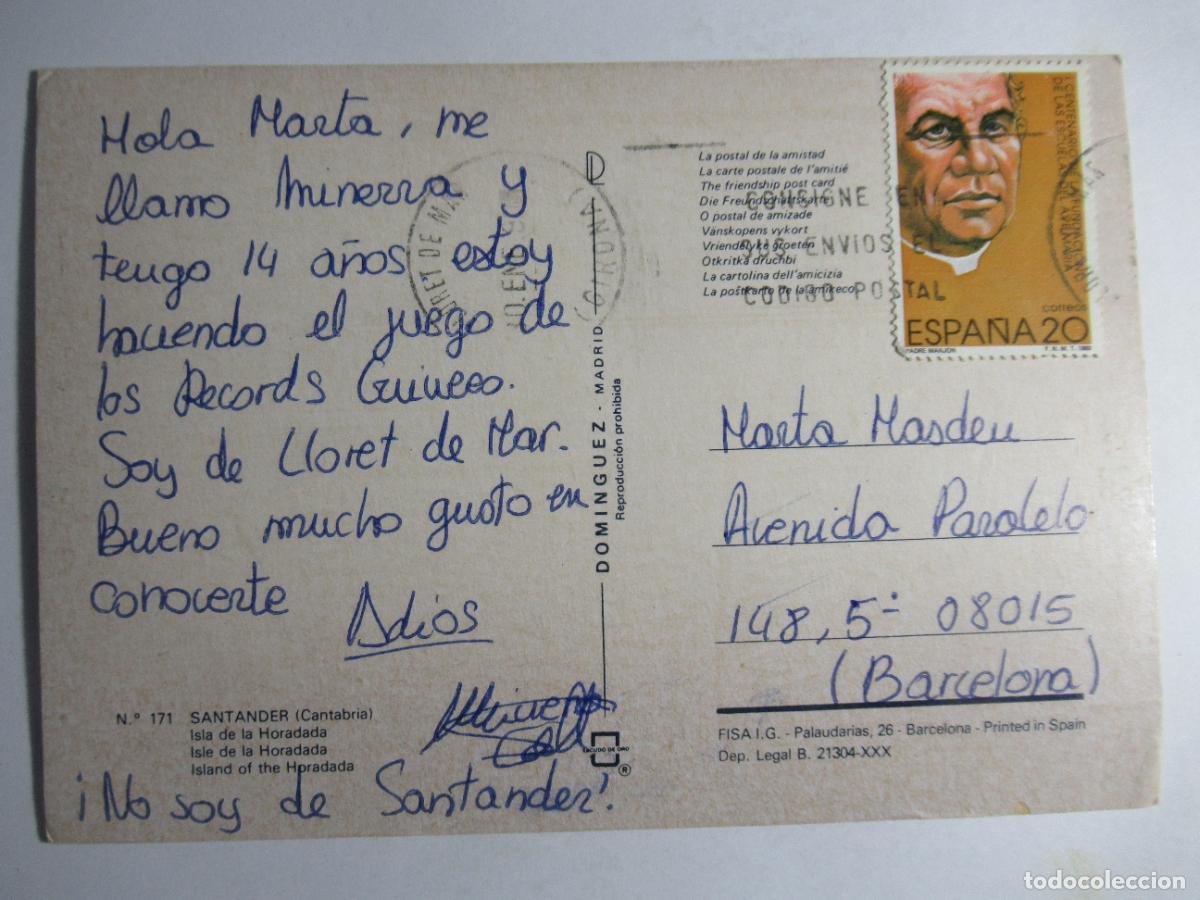 Hola Marta, me
llamo Minerva y
tengo 14 años estoy
haciendo el juego de
los Records Guinees.
Soy de Lloret de Mar.
Bueno mucho gusto en
conocerte
Adios
N.º 171 SANTANDER (Cantabria)
Isla de la Horadada
Isle de la Horadada
Island of the Horadada
¡No soy de Santander!
ESCUDO DE ORO
®
DOMINGUEZ - MADRID
Reproducción prohibida
La postal de la amistad
La carte postale de l'amitié
The friendship post card
Die Freundschaftskarte
O postal de amizade
Vänskopens vykort
Vriendelyke groeten
Otkritka druchbi
La cartolina dell'amicizia
La postkarto de la amikeco
CONSIGNE EN
SUS ENVIOS EL
CODIGO POSTAL
LORET DE MAR
(GIRONA)
I CENTENARIO DE LA FUNDACION
DE LAS ESCUELAS DEL AVE MARIA
correos
ESPAÑA 20
PADRE MANJON F.N.M.T.
Marta Masdeu
Avenida Paralelo
148, 5º 08015
(Barcelona)
FISA I.G. - Palaudarias, 26 - Barcelona - Printed in Spain
Dep. Legal B. 21304-XXX
todocoleccion